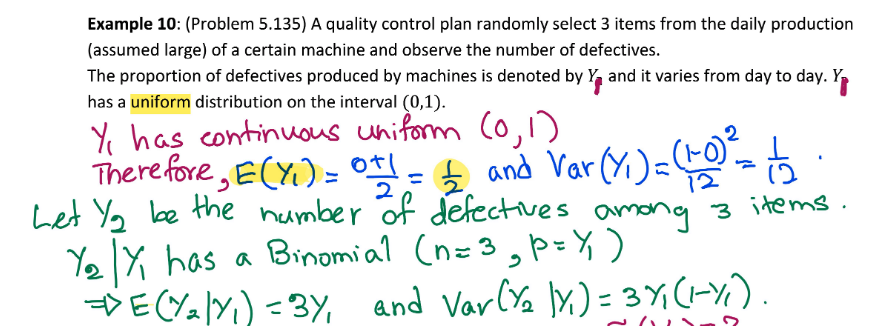 Example 10: (Problem 5.135) A quality control plan randomly select 3 items from the daily production
(assumed large) of a certain machine and observe the number of defectives.
The proportion of defectives produced by machines is denoted by Y₁ and it varies from day to day. Y₁
has a uniform distribution on the interval (0,1).
Y₁ has continuous uniform (0,1)
Therefore, E(Y₁) = (0+1)/2 = 1/2 and Var(Y₁) = (1-0)²/12 = 1/12.
Let Y₂ be the number of defectives among 3 items.
Y₂|Y₁ has a Binomial (n=3, p=Y₁)
⇒ E(Y₂|Y₁) = 3Y₁ and Var(Y₂|Y₁) = 3Y₁(1-Y₁).